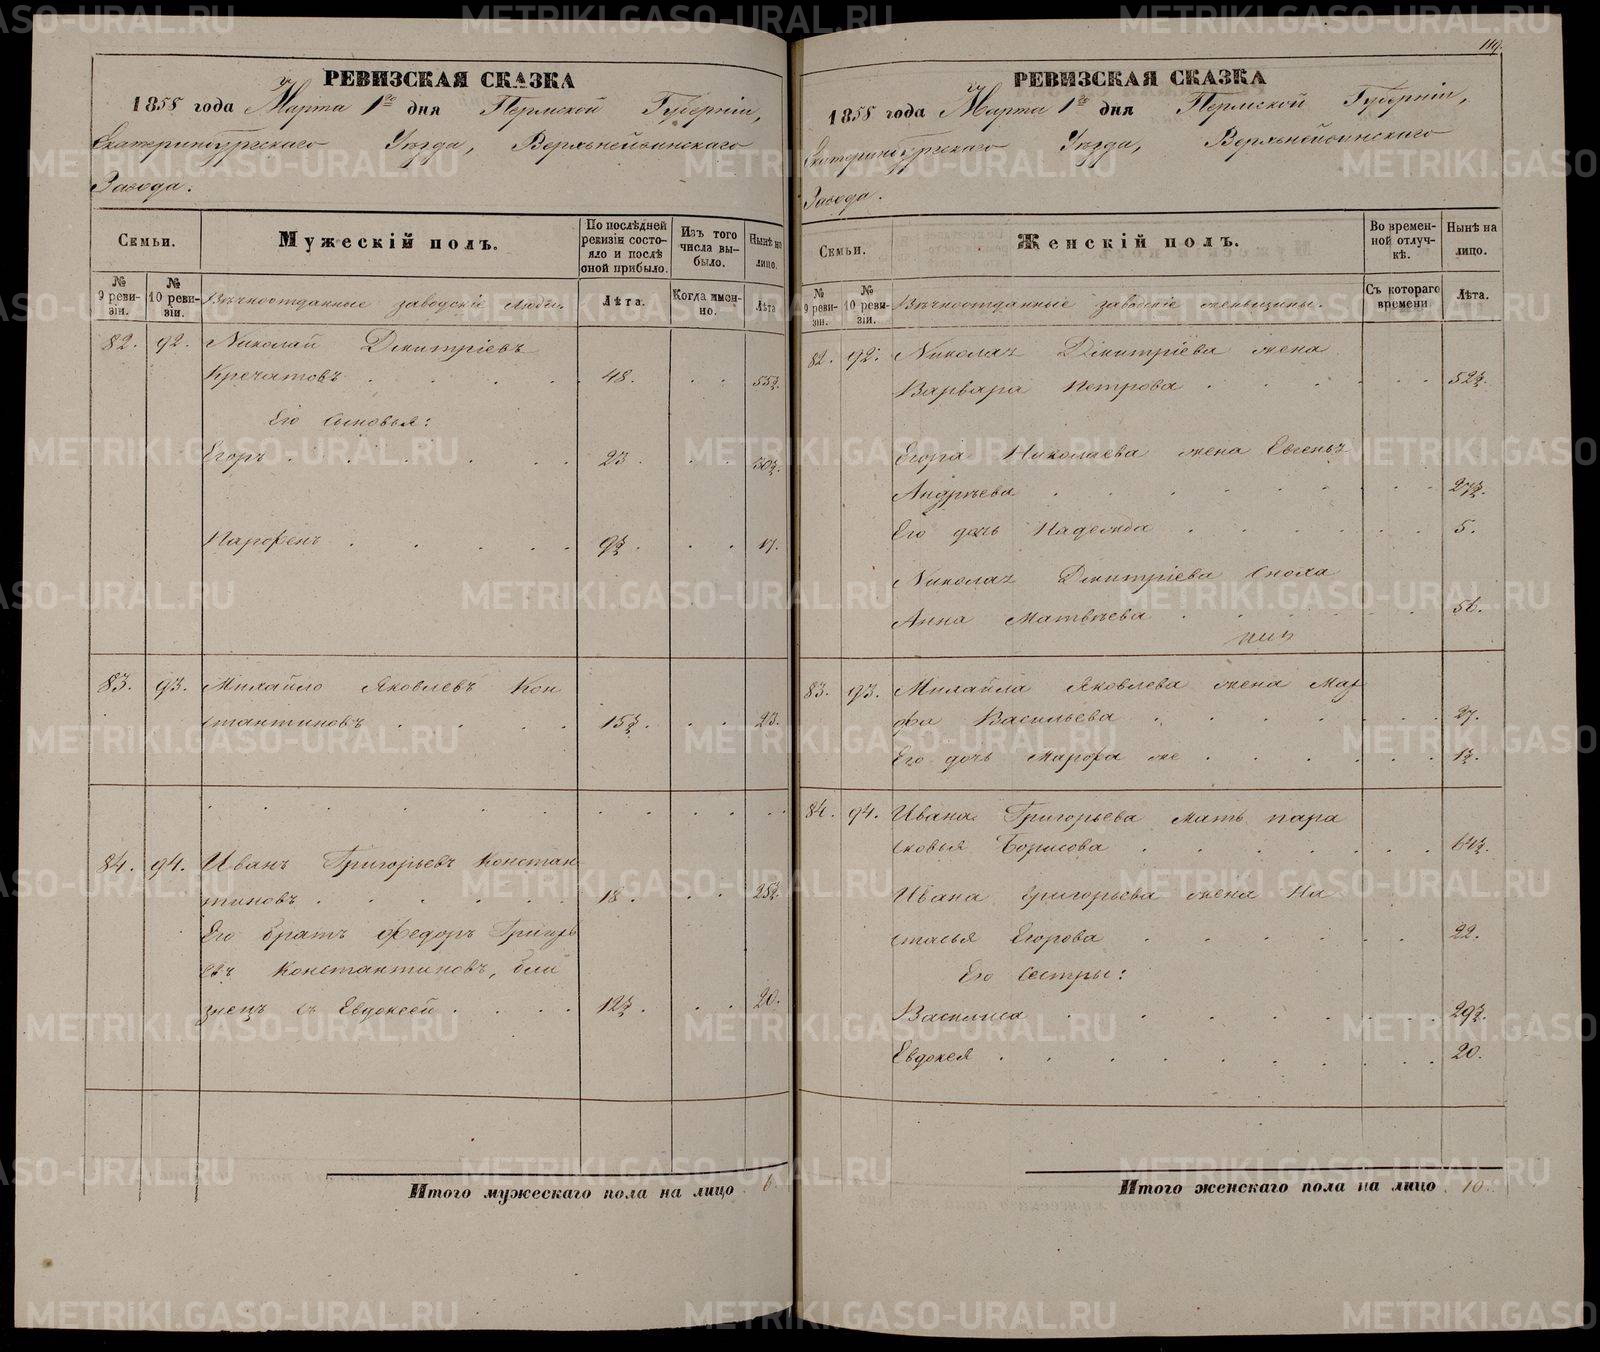 РЕВИЗСКАЯ СКАЗКА
1858 года Марта 1го дня Пермской Губерніи,
Екатеринбургскаго Уѣзда, Верхнейвинскаго
Завода.
Семьи.
Мужескій полъ.
По послѣдней ревизіи состояло и послѣ оной прибыло.
Изъ того числа выбыло.
Нынѣ на лицо.
№ 9 ревизіи.
№ 10 ревизіи.
Вѣчноотданные заводскіе люди.
Лѣта.
Когда именно.
Лѣта
82. 92. Николай Дмитріевъ
Кречатовъ 48. 55½.
Его сыновья:
Егоръ 23. 30½.
Парфенъ 9½. 17.
83. 93. Михайло Яковлевъ Кон
стантиновъ 15½. 23.
84. 94. Иванъ Григорьевъ Констан
тиновъ 18. 25½.
Его братъ Федоръ Григорь
евъ Константиновъ, бли
знецъ съ Евдокеей 12½. 20.
Итого мужескаго пола на лицо 6.
119.
РЕВИЗСКАЯ СКАЗКА
1858 года Марта 1го дня Пермской Губерніи,
Екатеринбургскаго Уѣзда, Верхнейвинскаго
Завода.
Семьи.
Женскій полъ.
Во временной отлучкѣ.
Нынѣ на лицо.
№ 9 ревизіи.
№ 10 ревизіи.
Вѣчноотданные заводскіе женщины.
Съ котораго времени.
Лѣта.
82. 92. Николая Дмитріева жена
Варвара Петрова 52½.
Егора Николаева жена Евгенья
Андрѣева 27½.
Его дочь Надежда 5.
Николая Дмитріева сноха
Анна Матвѣева 56.
83. 93. Михайла Яковлева жена Мар
фа Васильева 27.
Его дочь Марфа же 1½.
84. 94. Ивана Григорьева мать пара
сковья Борисова 64½.
Ивана Григорьева жена На
стасья Егорова 22.
Его сестры:
Василиса 29½.
Евдокея 20.
Итого женскаго пола на лицо 10.
METRIKI.GASO-URAL.RU